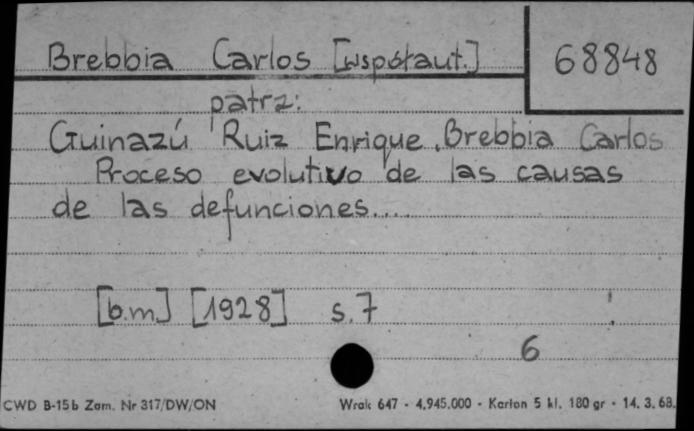 Brebbia Carlos [współaut.]
68848
patrz:
Guinazú Ruiz Enrique, Brebbia Carlos
Proceso evolutivo de las causas
de las defunciones....
[b.m.] [1928] s.7
6
CWD B-15b Zam. Nr 317/DW/ON
Wrak 647 - 4.945.000 - Karton 5 kl. 180 gr - 14. 3. 68.